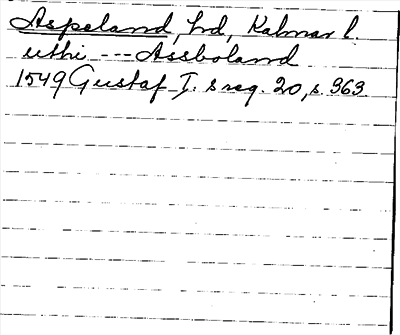 Aspeland, hd, Kalmar l.
uthi --- Assboland
1549 Gustaf I. s reg. 20, s. 363